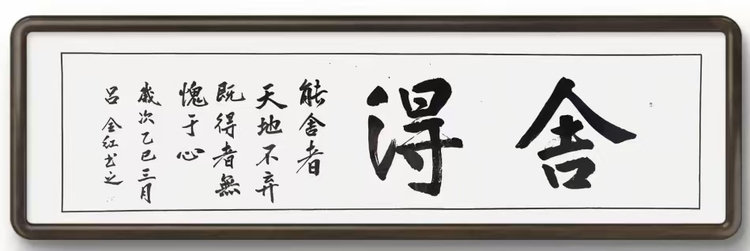 舍得
能舍者
天地不弃
既得者無
愧于心
歲次乙巳三月
吕金红书之